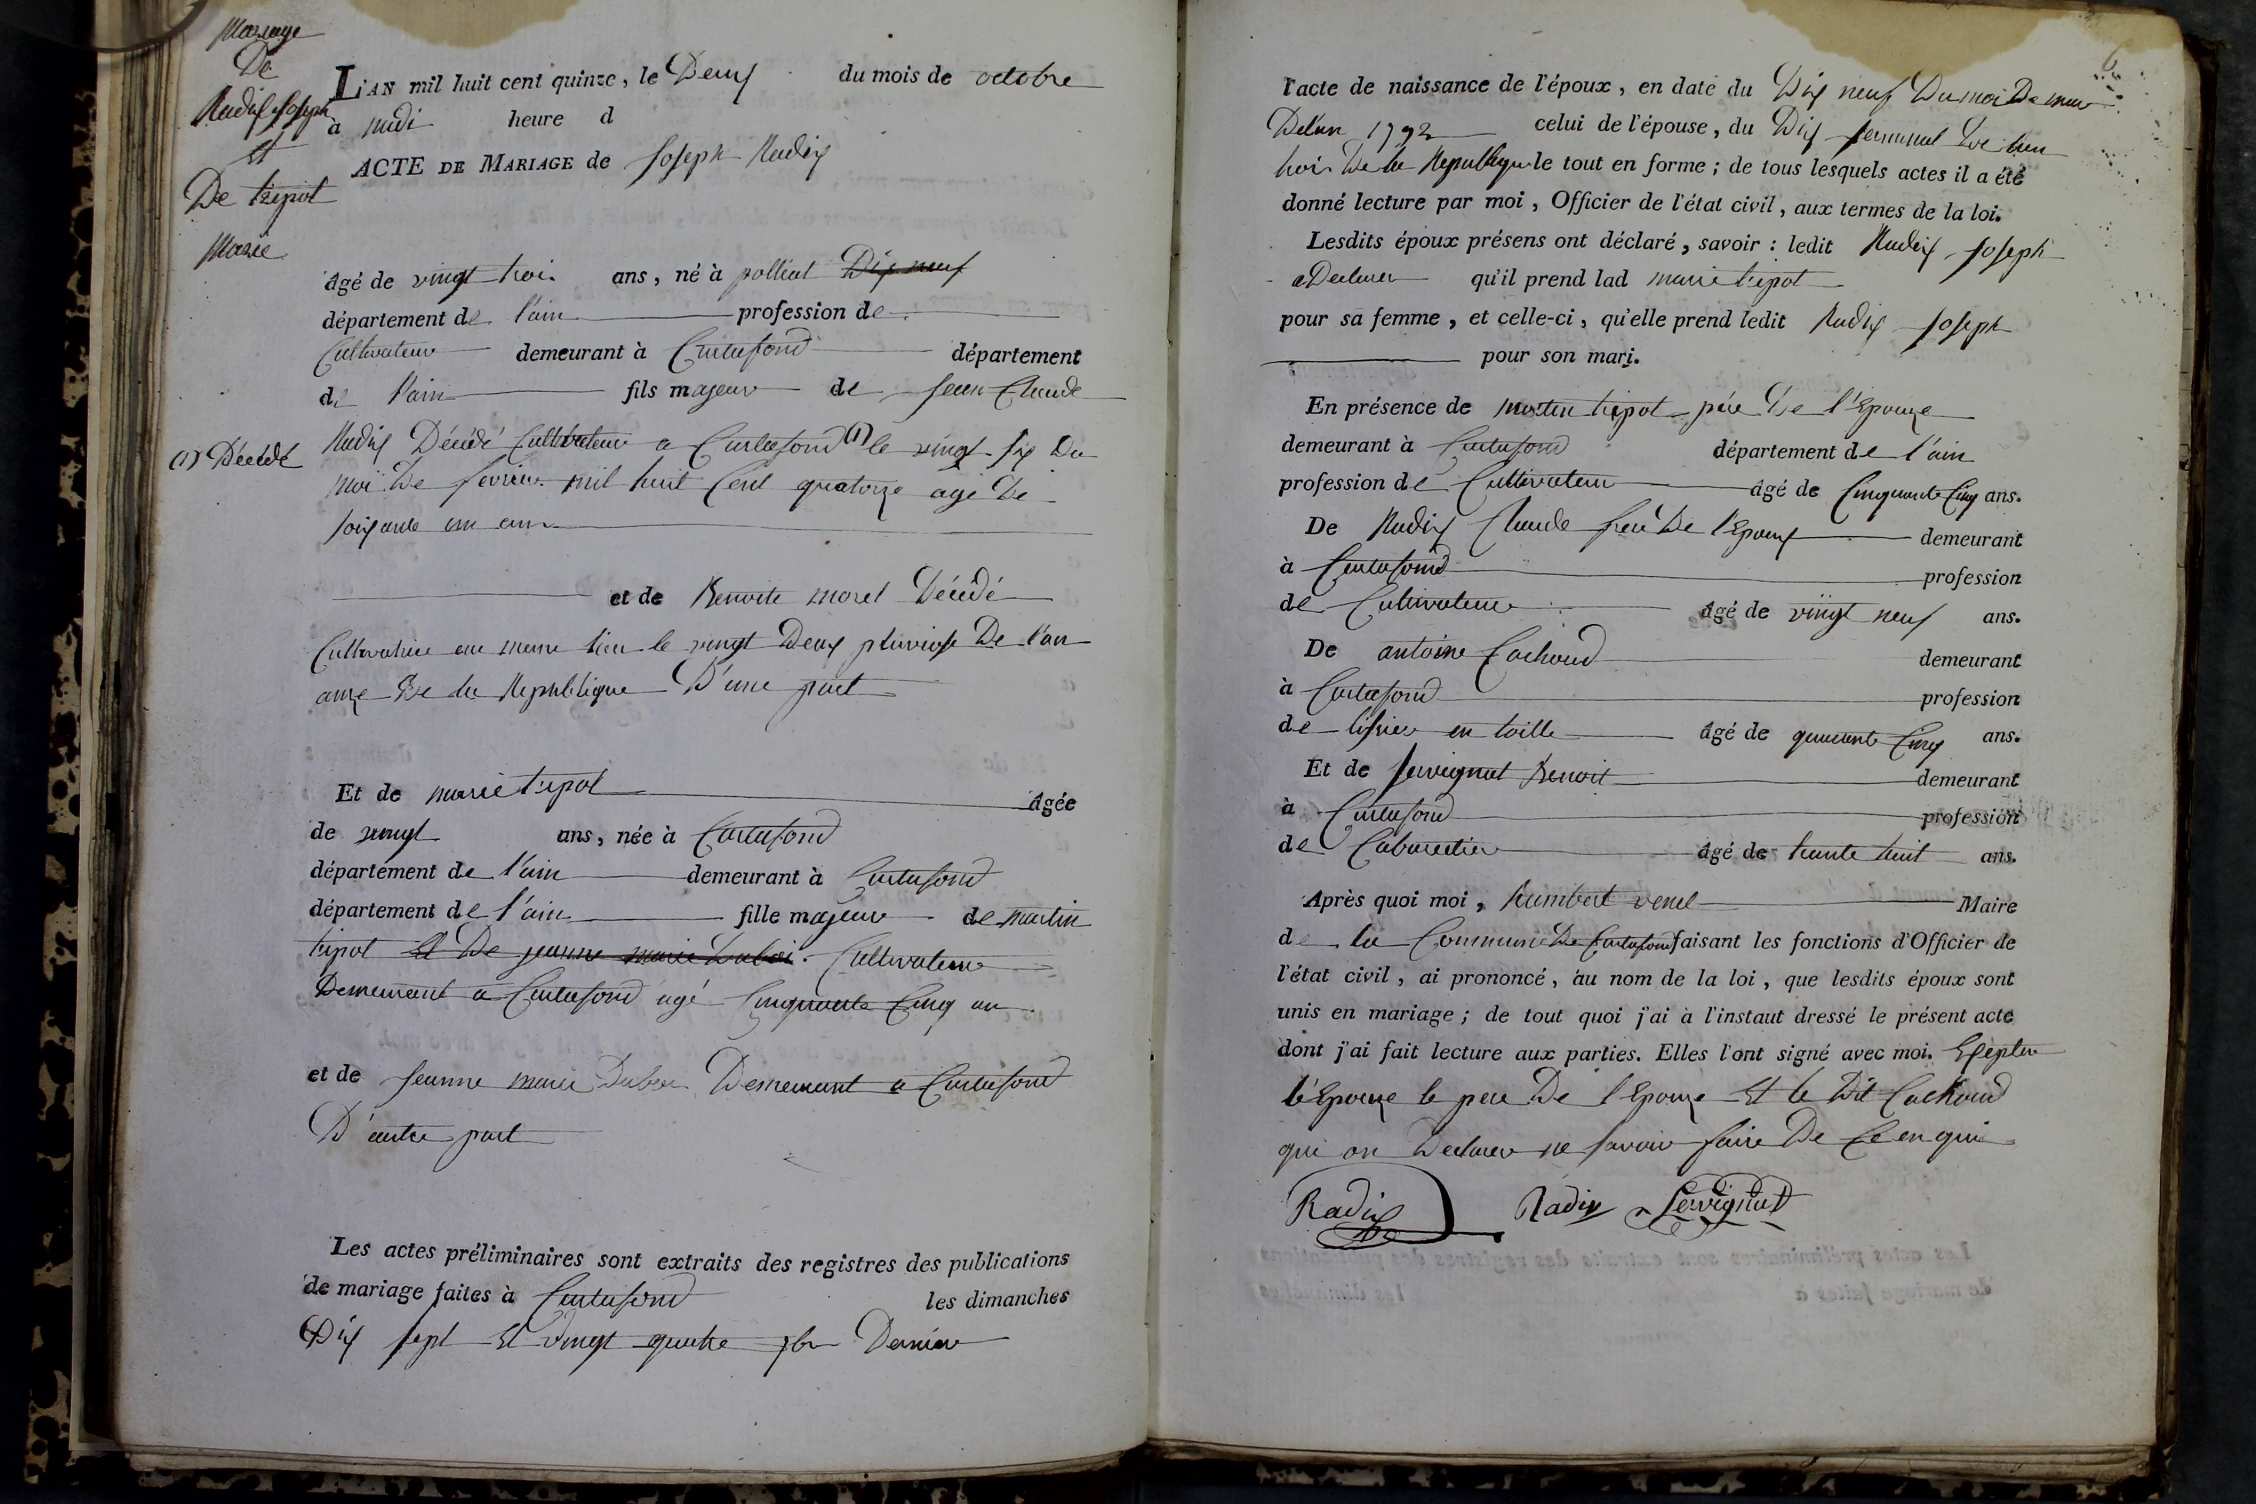 Mariage
De
Radix Joseph
Et
De tripot
Marie
L'AN mil huit cent quinze, le Deux du mois de octobre
à midi heure d
ACTE DE MARIAGE de Joseph Radix
âgé de vingt trois ans, né à polliat Dix neuf
département de l'ain profession de
Cultivateur demeurant à Curtafond département
de l'ain fils majeur de Jean Claude
(1) Décédé
Radix Décédé Cultivateur a Curtafond (1) le vingt six Du
moi De fevrier mil huit Cent quatorze agé De
soixante un ans
et de Benoite morel Décédé
Cultivatrice au meme lieu le vingt Deux pluviose De l'an
onze De la Republique D'une part
Et de marie tripot âgée
de vingt ans, née à Curtafond
département de l'ain demeurant à Curtafond
département de l'ain fille majeur de martin
tripot Et De jeanne marie Duboi. Cultivateur
Demeurant a Curtafond agé Cinquante Cinq an
et de Jeanne marie Duboi Demeurant a Curtafond
D'autre part
Les actes préliminaires sont extraits des registres des publications
de mariage faites à Curtafond les dimanches
Dix sept Et vingt quatre 7bre Dernier
6
l'acte de naissance de l'époux, en date du Dix neuf Du moi De mar
De l'an 1792 celui de l'épouse, du Dix germinal De l'an
trois De la Republique le tout en forme; de tous lesquels actes il a été
donné lecture par moi, Officier de l'état civil, aux termes de la loi.
Lesdits époux présens ont déclaré, savoir: ledit Radix Joseph
a Declarer qu'il prend lad marie tripot
pour sa femme, et celle-ci, qu'elle prend ledit Radix Joseph
pour son mari.
En présence de martin tripot père De l'Epouze
demeurant à Curtafond département de l'ain
profession de Cultivateur âgé de Cinquante Cinq ans.
De Radix Claude frere De l'Epoux demeurant
à Curtafond profession
de Cultivateur âgé de vingt neuf ans.
De antoine Cachoud demeurant
à Curtafond profession
de tissier en toille âgé de quarante Cinq ans.
Et de Servignat Benoit demeurant
à Curtafond profession
de Cabaretier âgé de trente huit ans.
Après quoi moi, humbert venel Maire
de la Commune De Curtafond faisant les fonctions d'Officier de
l'état civil, ai prononcé, au nom de la loi, que lesdits époux sont
unis en mariage; de tout quoi j'ai à l'instaut dressé le présent acte
dont j'ai fait lecture aux parties. Elles l'ont signé avec moi. Exepter
l'Epouze le pere De l'Epouze Et le Dit Cachoud
qui on Declarer ne savoir faire De Ce enqui
Radix Radix Servignat